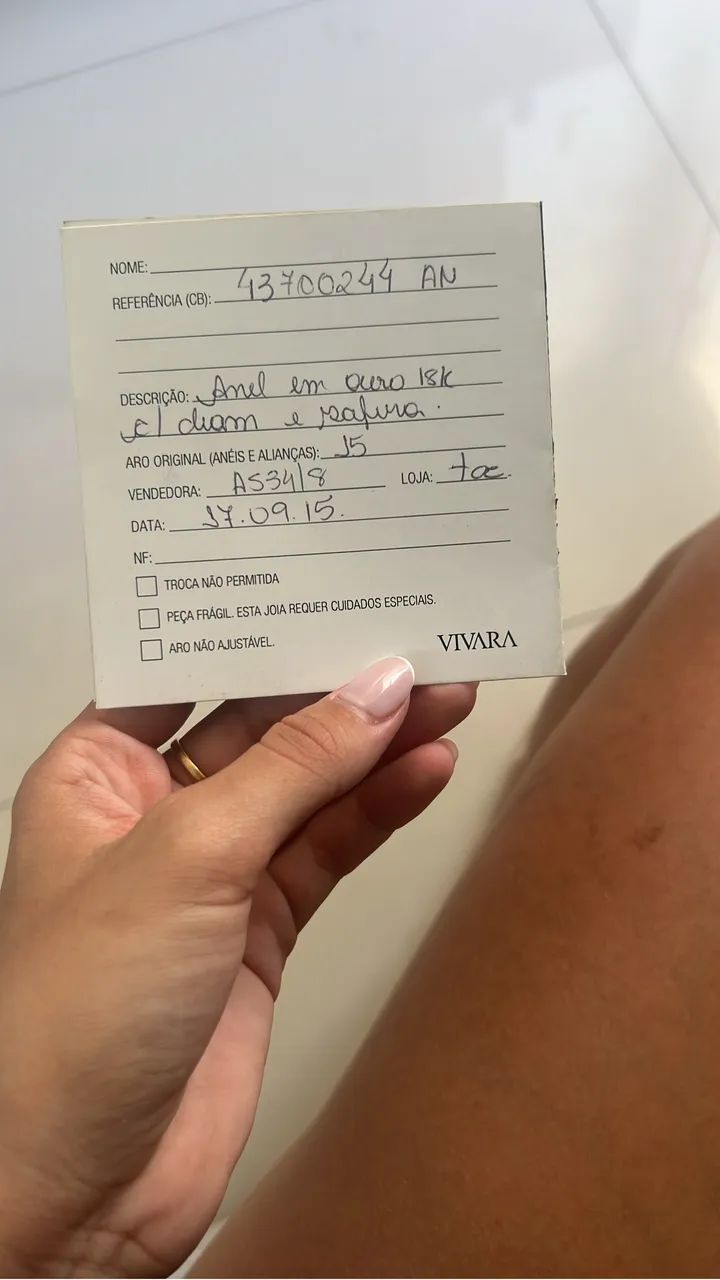 NOME:
REFERÊNCIA (CB): 43700244 AN
DESCRIÇÃO: Anel em ouro 18k
c/ diam e safira.
ARO ORIGINAL (ANÉIS E ALIANÇAS): 15
VENDEDORA: AS34/8 LOJA:
DATA: 17.09.15.
NF:
TROCA NÃO PERMITIDA
PEÇA FRÁGIL. ESTA JOIA REQUER CUIDADOS ESPECIAIS.
ARO NÃO AJUSTÁVEL.
VIVARA